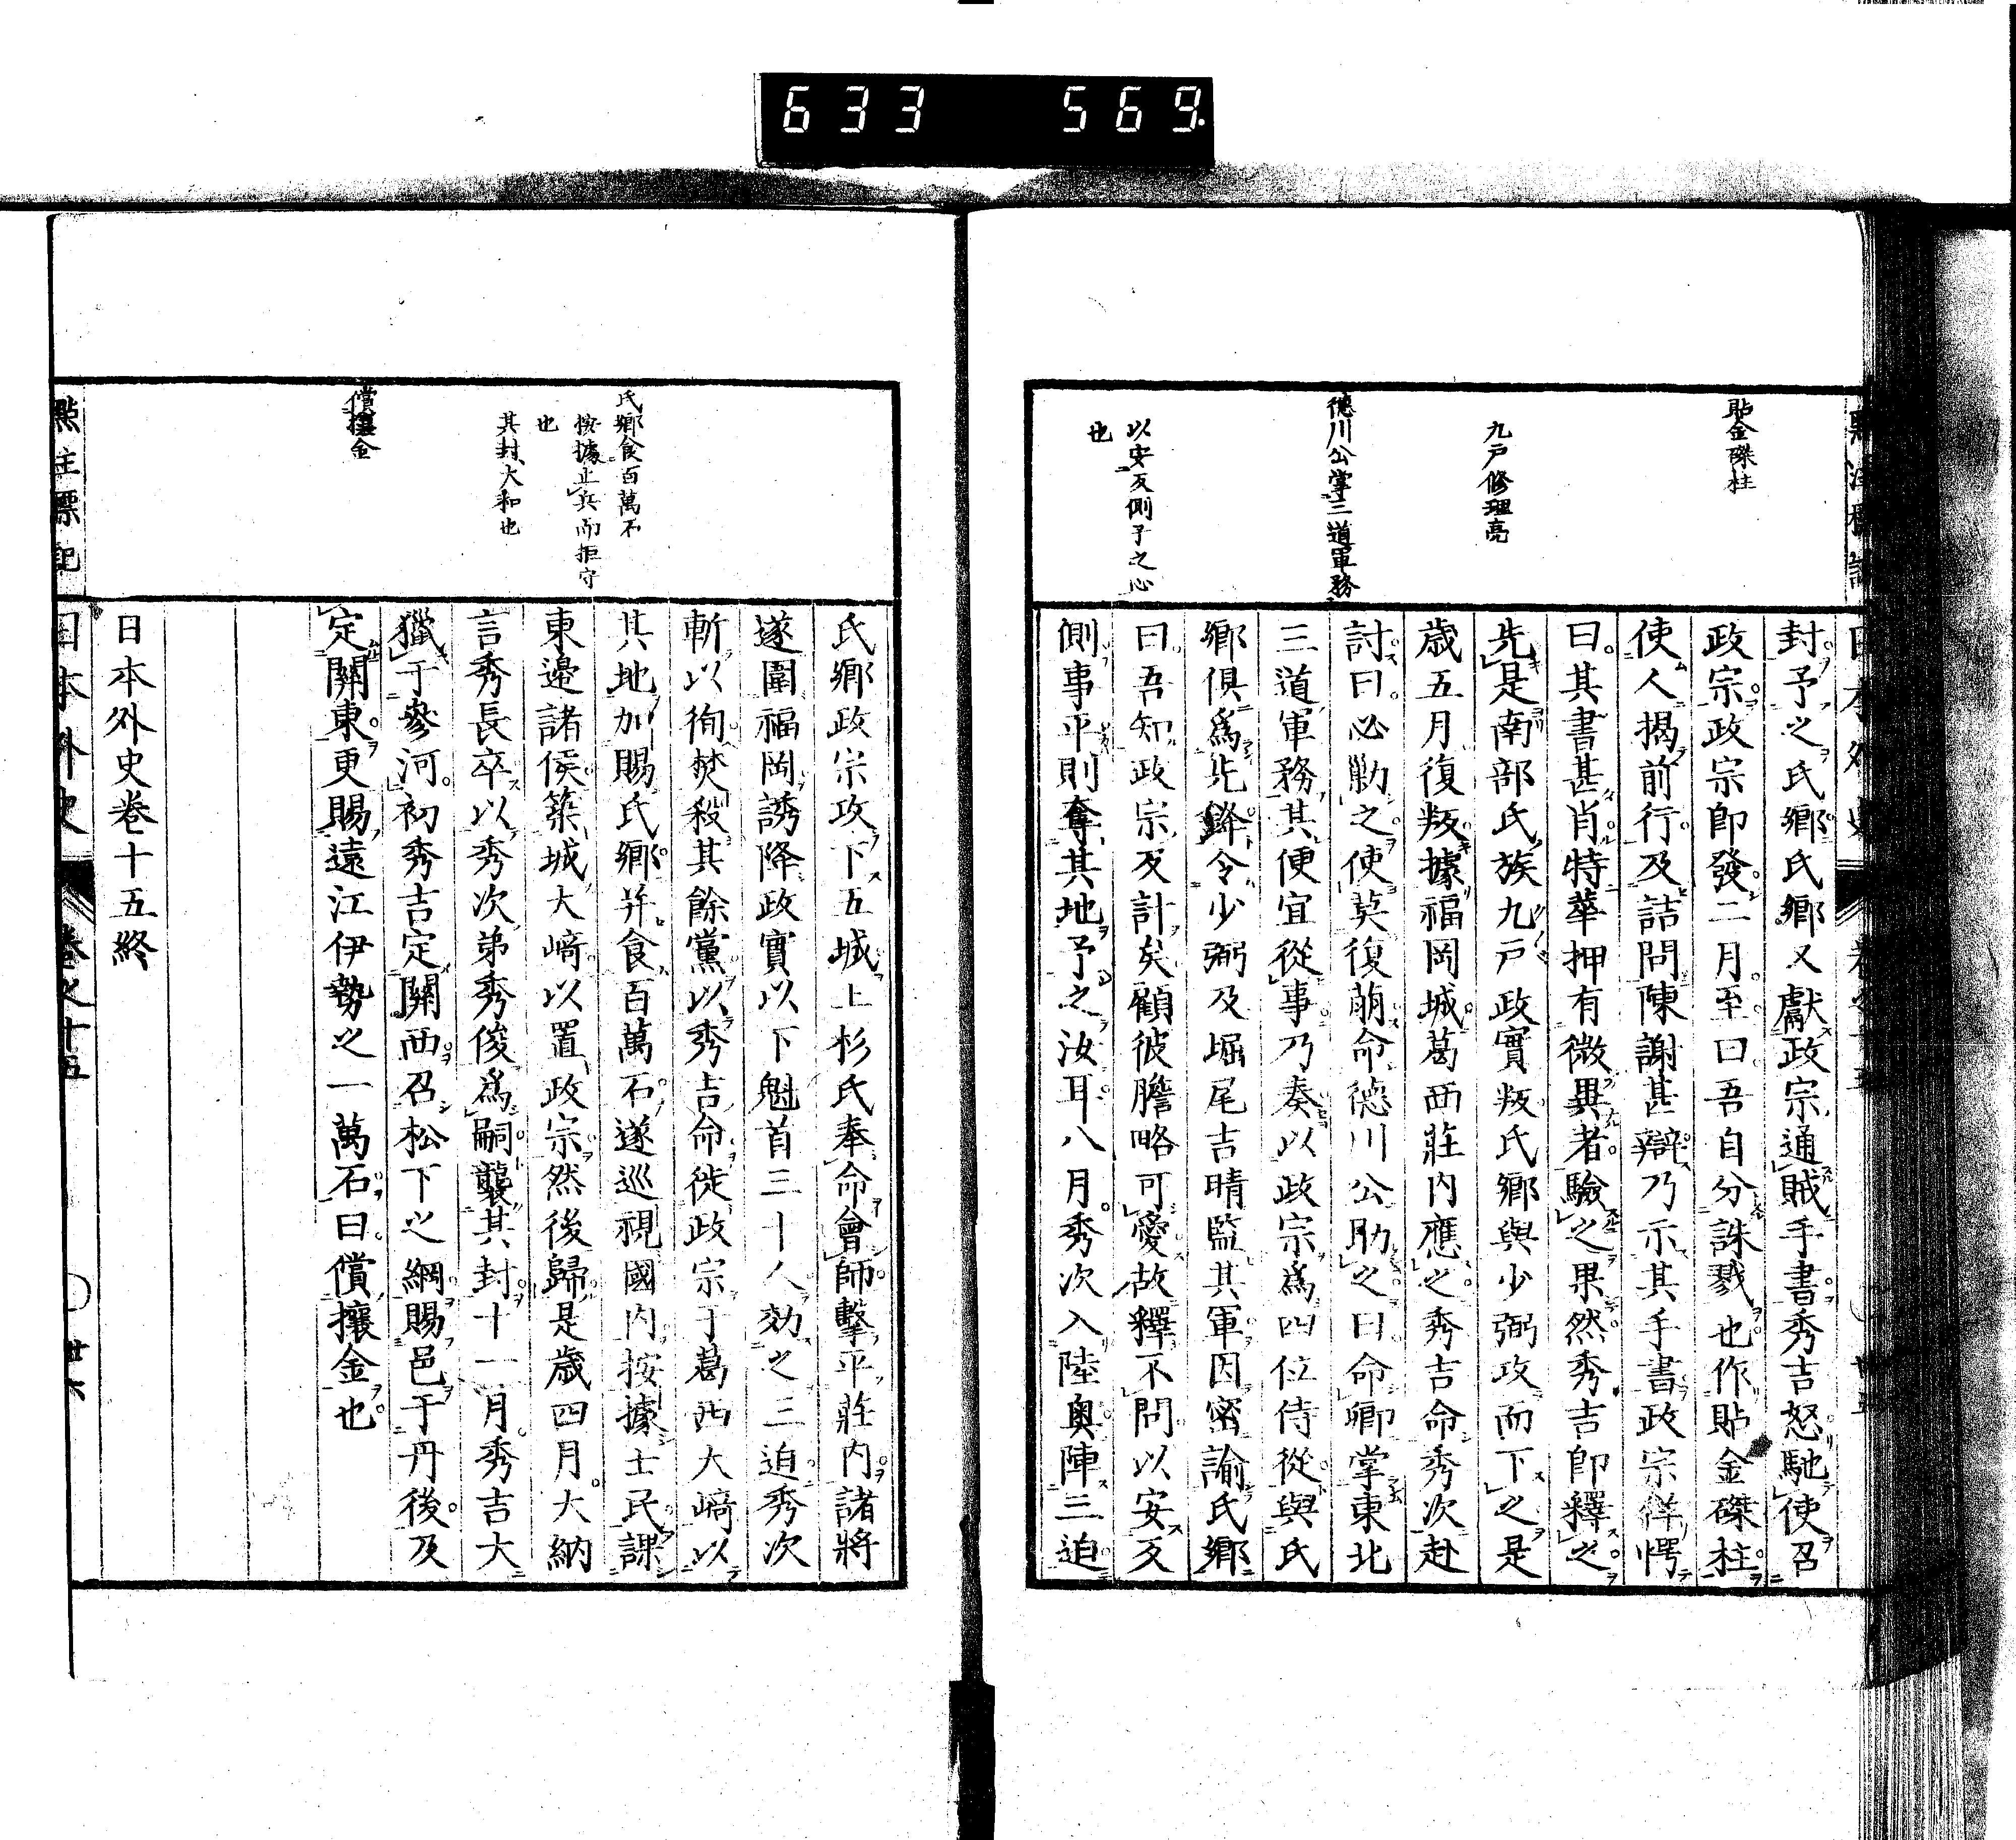 633 569
貼金磔柱
九戸修理亮
德川公掌三道軍務
以安反側子之心
也
封予之氏郷氏郷又獻政宗通賊手書秀吉怒馳使召
政宗政宗即發二月至曰吾自分誅戮也作貼金磔柱
使人揭前行及詰問陳謝甚辯乃示其手書政宗佯愕
曰其書甚肖特華押有微異者驗之果然秀吉即釋之
先是南部氏族九戸政實叛氏郷與少弼攻而下之是
歲五月復叛據福岡城葛西莊内應之秀吉命秀次赴
討曰必勦之使莫復萌命德川公助之曰命卿掌東北
三道軍務其便宜從事乃奏以政宗爲四位侍從與氏
郷倶爲先鋒令少弼及堀尾吉晴監其軍因密諭氏郷
曰吾知政宗反計矣顧彼膽略可愛故釋不問以安反
側事平則奪其地予之汝耳八月秀次入陸奥陣三迫
氏郷食百萬石
按據止兵而拒守
也
其封大和也
償攘金
氏郷政宗攻下五城上杉氏奉命會師擊平莊内諸將
遂圍福岡誘降政實以下魁首三十人効之三迫秀次
斬以徇焚殺其餘黨以秀吉命徙政宗于葛西大﨑以
其地加賜氏郷并食百萬石遂巡視國内按據士民課
東邊諸侯築城大﨑以置政宗然後歸是歲四月大納
言秀長卒以秀次弟秀俊爲嗣襲其封十一月秀吉大
獵于參河初秀吉定關西召松下之綱賜邑于丹後及
定關東更賜遠江伊勢之一萬石曰償攘金也
日本外史卷十五終
點註標記
日本外史
卷之十五
卅六